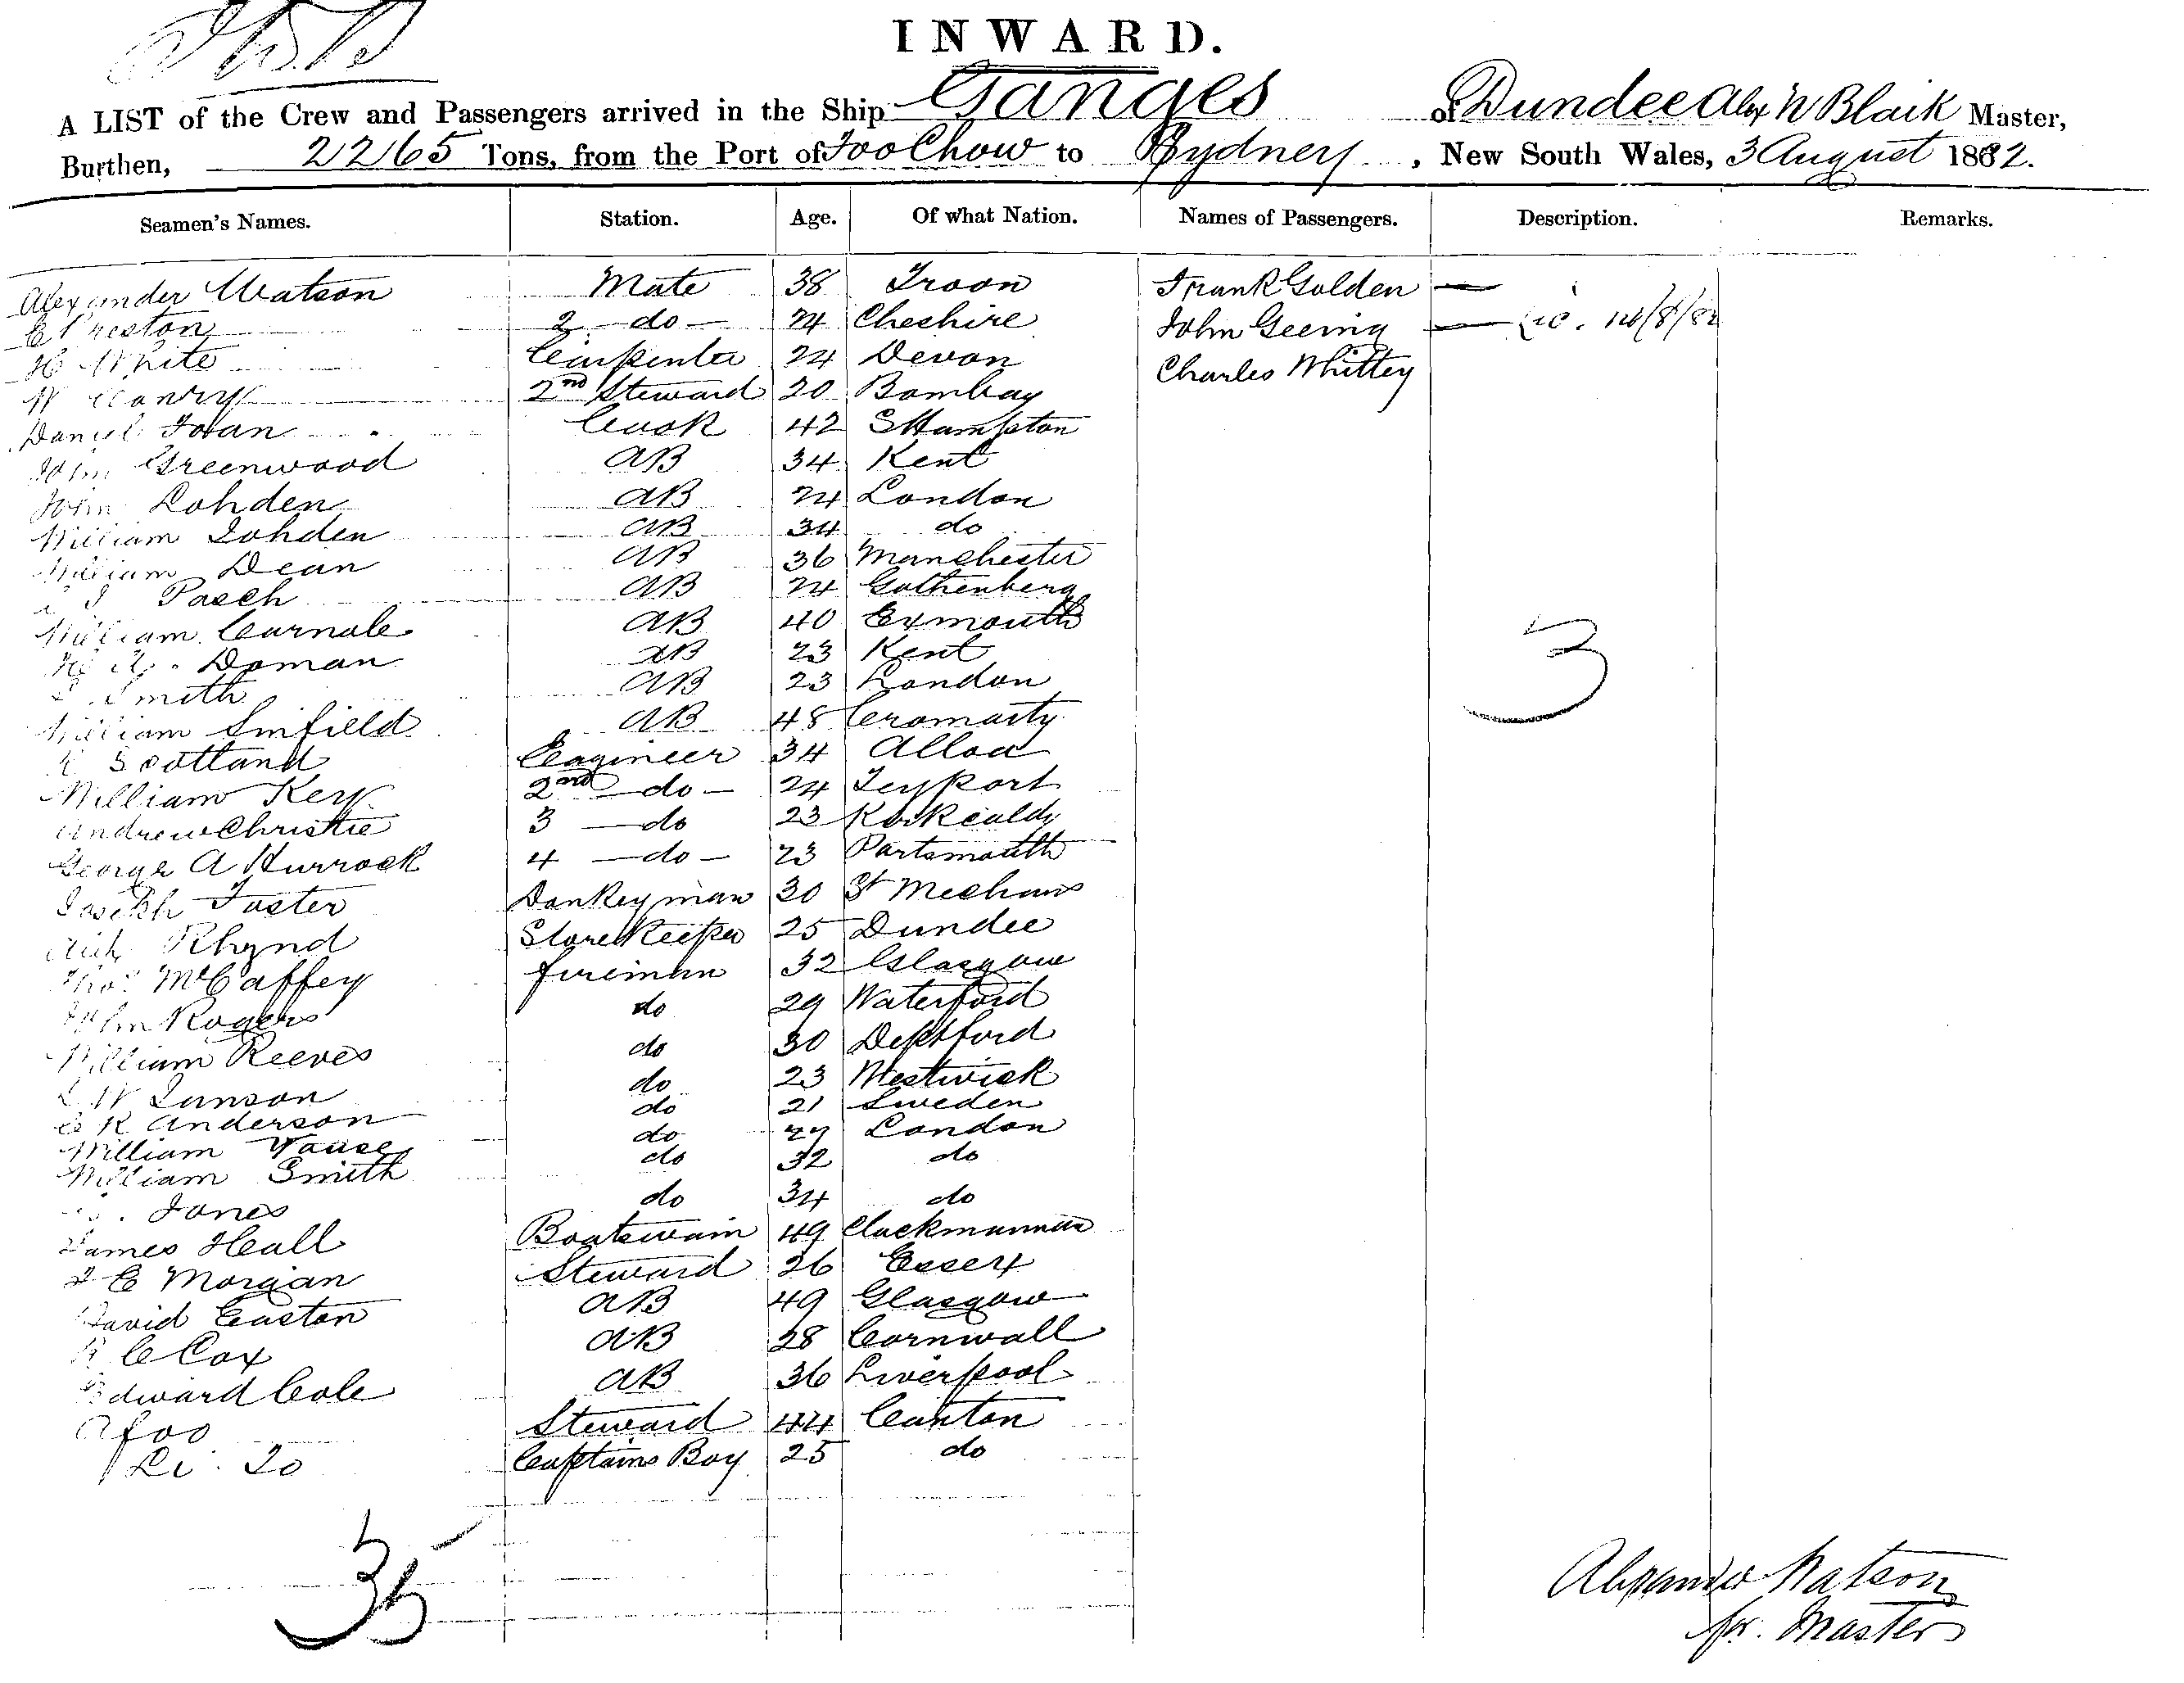 INWARD.
A LIST of the Crew and Passengers arrived in the Ship Ganges of Dundee Alexr W Blaik Master,
Burthen, 2265 Tons, from the Port of Foo Chow to Sydney, New South Wales, 3 August 1882.
Seamen's Names. Station. Age. Of what Nation. Names of Passengers. Description. Remarks.
Alexander Watson Mate 38 Troon Frank Golden —
C Preston 2 — do — 24 Cheshire John Geering — 14/8/82
H White Carpenter 24 Devon Charles Whittey
W 2nd Steward 20 Bombay
Daniel Cook 42 SHampton
John Greenwood AB 34 Kent
John Lohden AB 24 London
William Lohden AB 34 do
William Dean AB 36 Manchester
Pasch AB 24 Gothenberg
William Curnale AB 40 Exmouth
Doman AB 23 Kent
Smith AB 23 London
William Sinfield AB 48 Cromarty
Scotland Engineer 34 Alloa
William Kerr 2nd — do — 24 Teyport
Andrew Christie 3 — do 23 Kirkcaldy
George A Hurrock 4 — do — 23 Portsmouth
Joseph Foster Donkeyman 30 St
Rhynd StoreKeeper 25 Dundee
Thos McCaffey fireman 32 Glasgow
John Rogers do 29 Waterford
William Reeves do 30 Deptford
W Lunson do 23 Westwick
R Anderson do 21 Sweden
William Vause do London
William Smith do 32 do
Jones do 34 do
James Heall Boatswain 49 Clackmannan
E Morgan Steward 26 Essex
David Easton AB 49 Glasgow
C Cox AB 28 Cornwall
Edward Cole AB 36 Liverpool
Afoo Steward 44 Canton
Li To Captains Boy 25 do
3
35
Alexander Watson
for Master